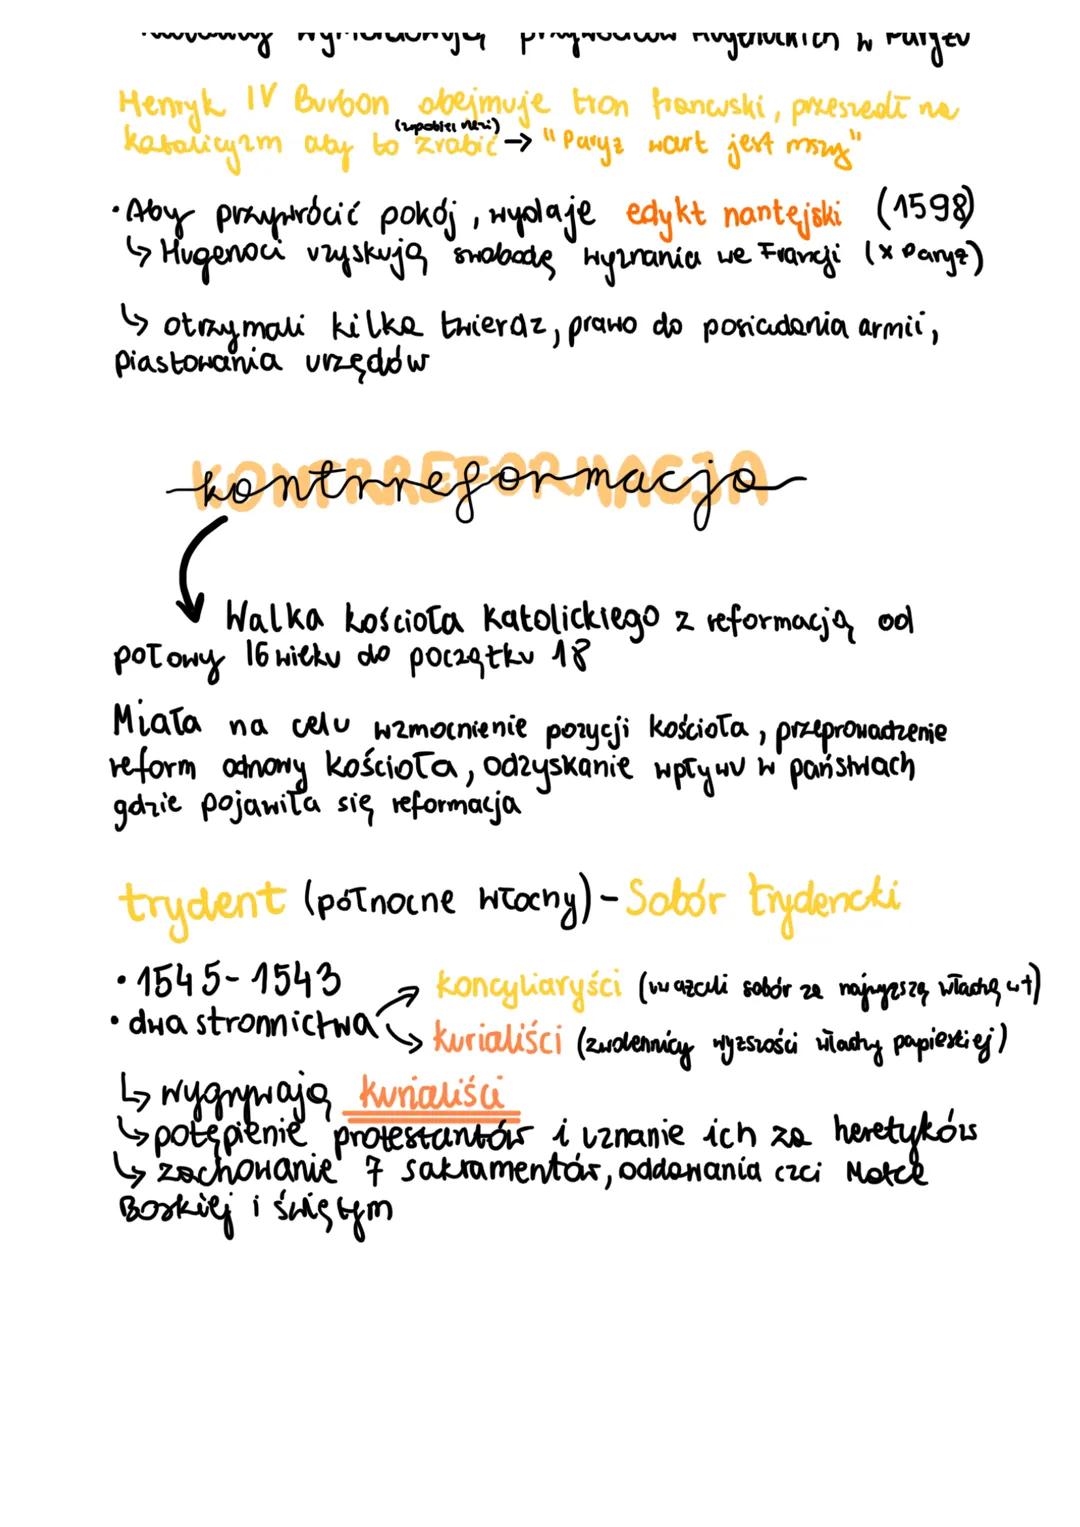 Henryk IV Burbon obejmuje tron francuski, przeszedł na
(zapobiec rzezi)
katolicyzm aby to zrobić → "Paryż wart jest mszy"
• Aby przywrócić pokój, wydaje edykt nantejski (1598)
↳ Hugenoci uzyskują swobodę wyznania we Francji (x Paryż)
↳ otrzymali kilka twierdz, prawo do posiadania armii,
piastowania urzędów
KONTRREFORMACJA
kontrreformacja
Walka kościoła katolickiego z reformacją od
połowy 16 wieku do początku 18
Miała na celu wzmocnienie pozycji kościoła, przeprowadzenie
reform odnowy kościoła, odzyskanie wpływu w państwach
gdzie pojawiła się reformacja
trydent (północne włochy) - Sobór trydencki
• 1545-1543
→ koncyliaryści (uważali sobór za najwyższą władzę
• dwa stronnictwa
↳ kurialiści (zwolennicy wyższości władzy papieskiej)
↳ wygrywają kurialiści
↳ potępienie protestantów i uznanie ich za heretyków
↳ zachowanie 7 sakramentów, oddawania czci Matce
Boskiej i świętym